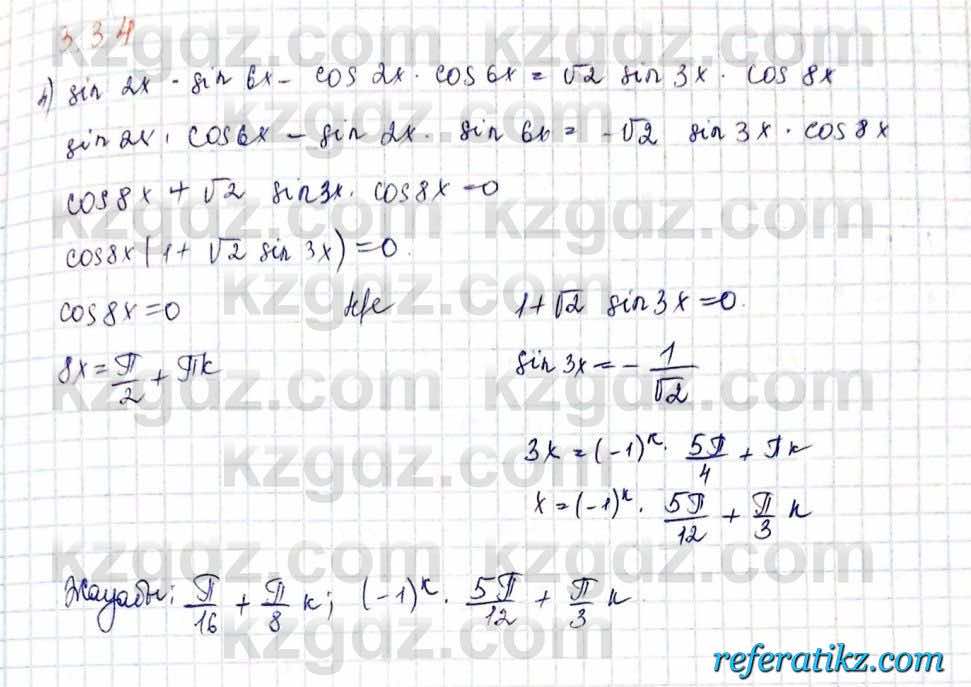 3.34
1) sin 2x · sin 6x - cos 2x · cos 6x = √2 sin 3x · cos 8x
sin 2x · cos 6x - sin 2x · sin 6x = -√2 sin 3x · cos 8x
cos 8x + √2 sin 3x · cos 8x = 0
cos 8x (1 + √2 sin 3x) = 0.
cos 8x = 0 н/е 1 + √2 sin 3x = 0.
8x = π/2 + πk sin 3x = - 1/√2
3x = (-1)^k · 5π/4 + πk
x = (-1)^k · 5π/12 + π/3 k
Жауабы: π/16 + π/8 k; (-1)^k · 5π/12 + π/3 k.
kzgdz.com
kzgdz.com kzgdz.com
kzgdz.com
kzgdz.com kzgdz.com
kzgdz.com
kzgdz.com kzgdz.com
kzgdz.com
referatikz.com